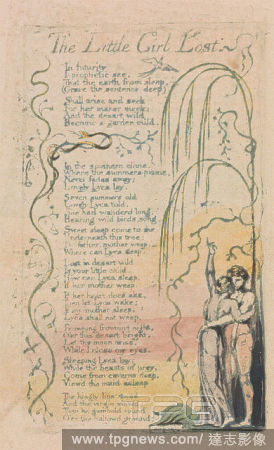 The Little Girl Lost
In futurity
I prophetic see,
That the earth from sleep,
(Grave the sentence deep)
Shall arise and seek
For her maker meek:
And the desart wild
Become a garden mild.
In the southern clime,
Where the summers prime,
Never fades away;
Lovely Lyca lay.
Seven summers old
Lovely Lyca told,
She had wanderd long,
Hearing wild birds song.
Sweet sleep come to me
Underneath this tree;
father, mother weep,
Where can Lyca sleep.
Lost in desart wild
Is your little child.
can Lyca sleep,
If her mother weep.
If her heart does ake,
Then let Lyca wake;
If my mother sleep,
Lyca shall not weep.
Frowning frowning night,
O'er this desart bright,
Let thy moon arise,
While I close my eyes.
Sleeping Lyca lay;
While the beasts of prey,
Come from caverns deep,
View'd the maid asleep
The kingly lion stood
And the virgin view'd,
Then he gambold round
O'er the hallowd ground
www.tpgnews.com/達志影像